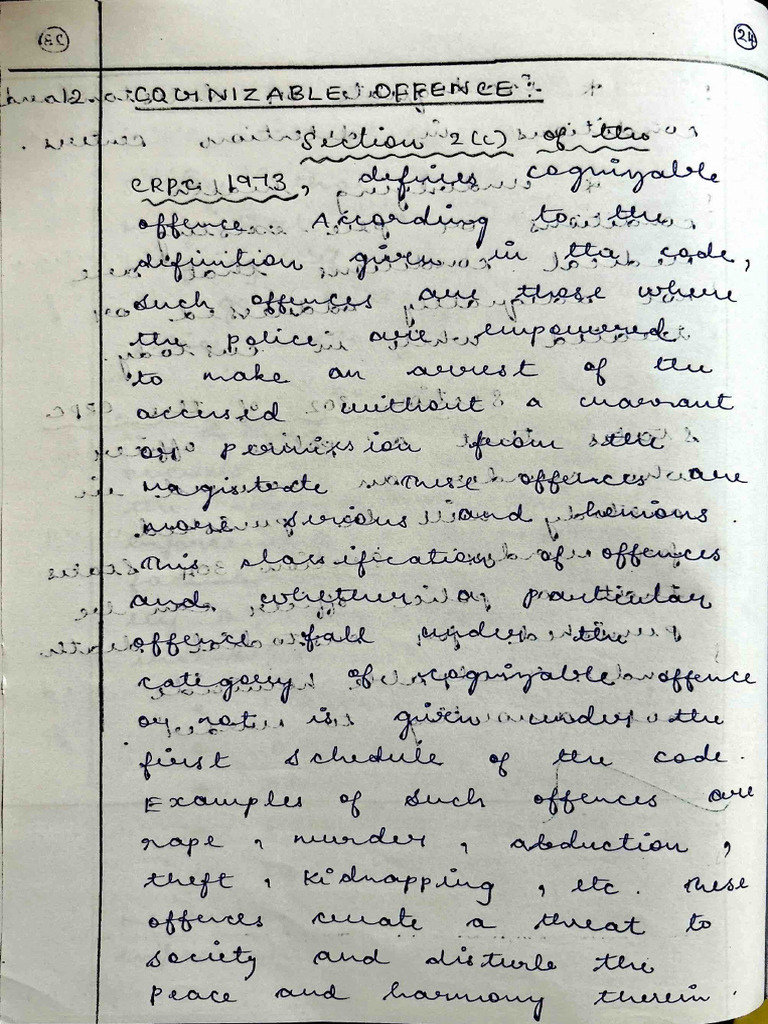 24
COGNIZABLE OFFENCE :-
Section 2(c) of the
CRPC 1973, defines cognizable
offence. According to the
definition given in the code,
such offences are those where
the police are empowered
to make an arrest of the
accused without a warrant
or permission from the
magistrate. These offences are
more serious and heinous.
This classification of offences
and whether a particular
offence fall under the
category of cognizable offence
or not is given under the
first schedule of the code.
Examples of such offences are
rape, murder, abduction,
theft, kidnapping, etc. These
offences create a threat to
society and disturb the
peace and harmony therein.